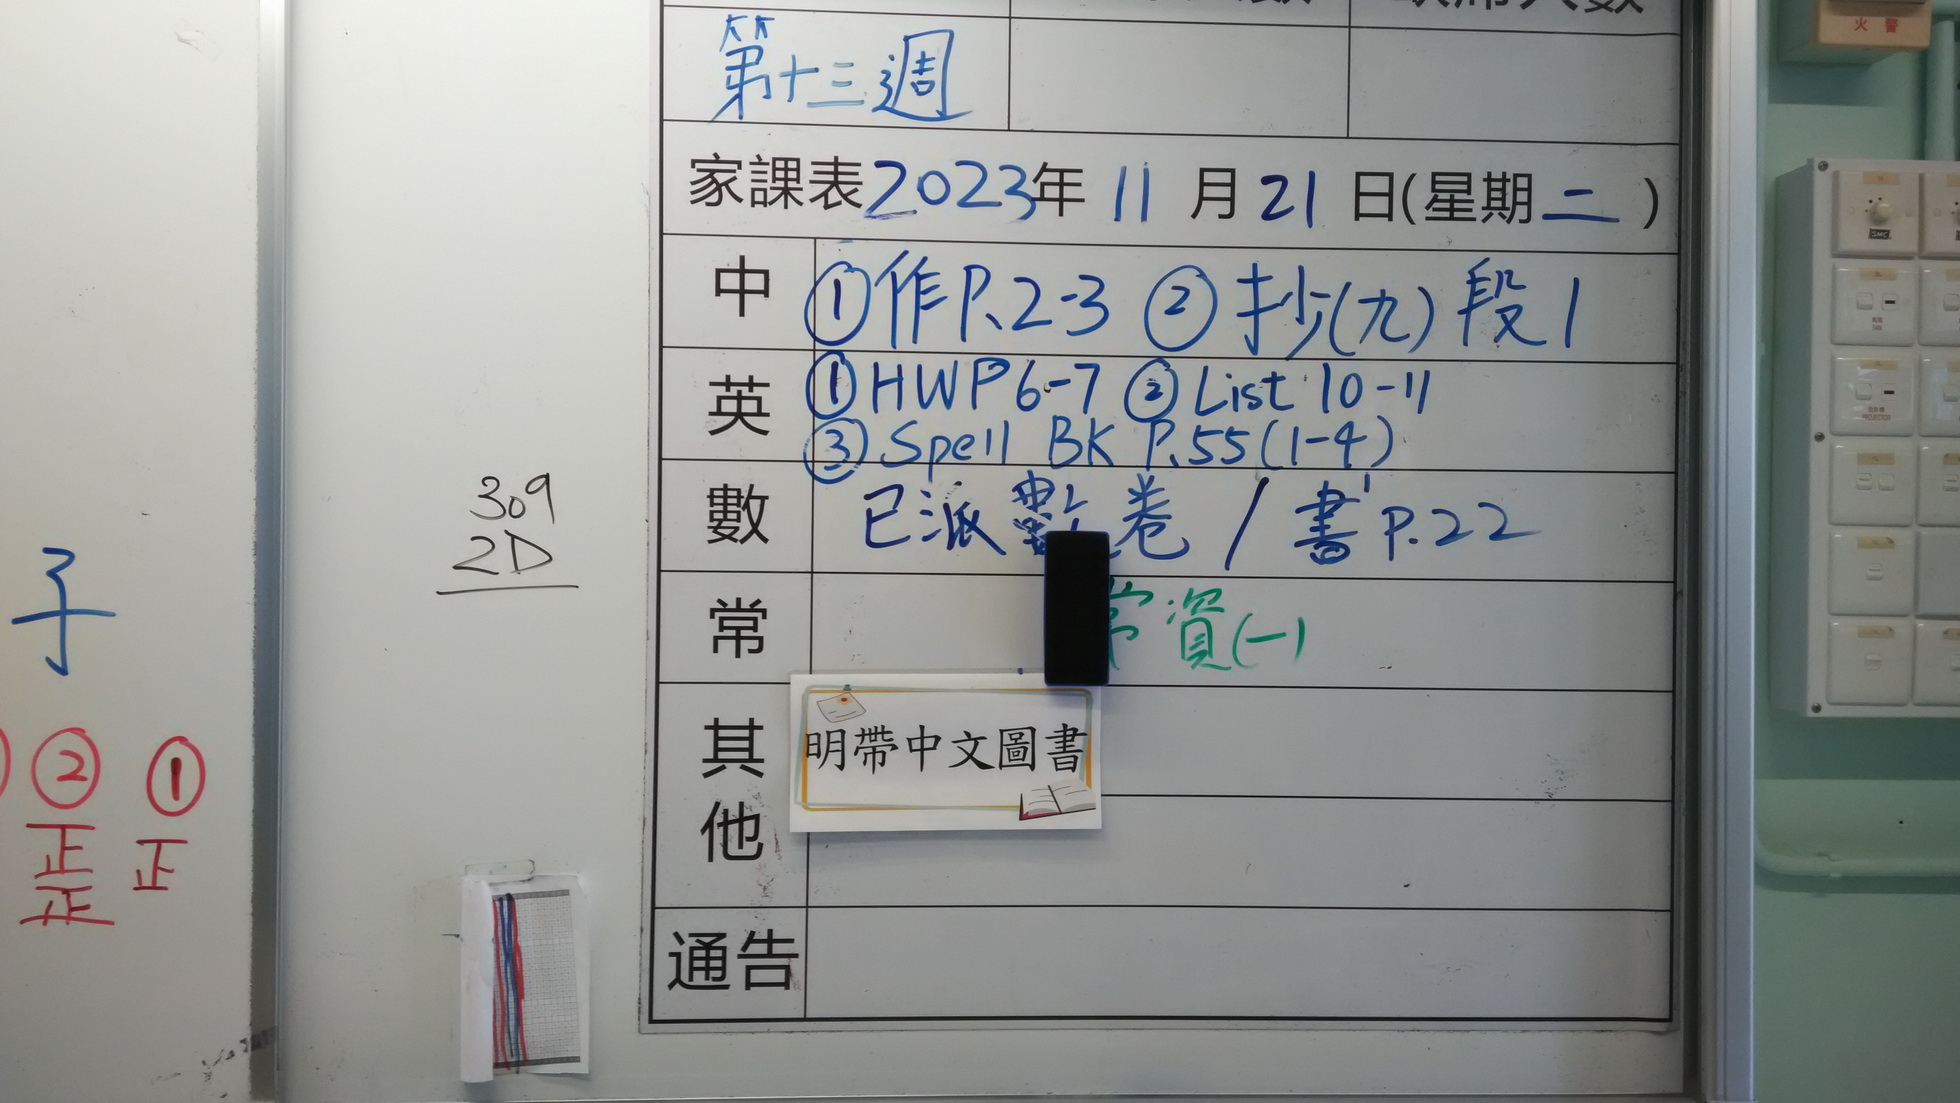 第十三週
家課表2023年 11 月 21 日(星期二)
中 ①作P.2-3 ②抄(九)段1
英 ①HWP6-7 ②List 10-11
③Spell BK P.55(1-4)
數 已派數卷 / 書P.22
常 常資(一)
其他 明帶中文圖書
通告
309
2D
子
② ①
正 正
正
火警